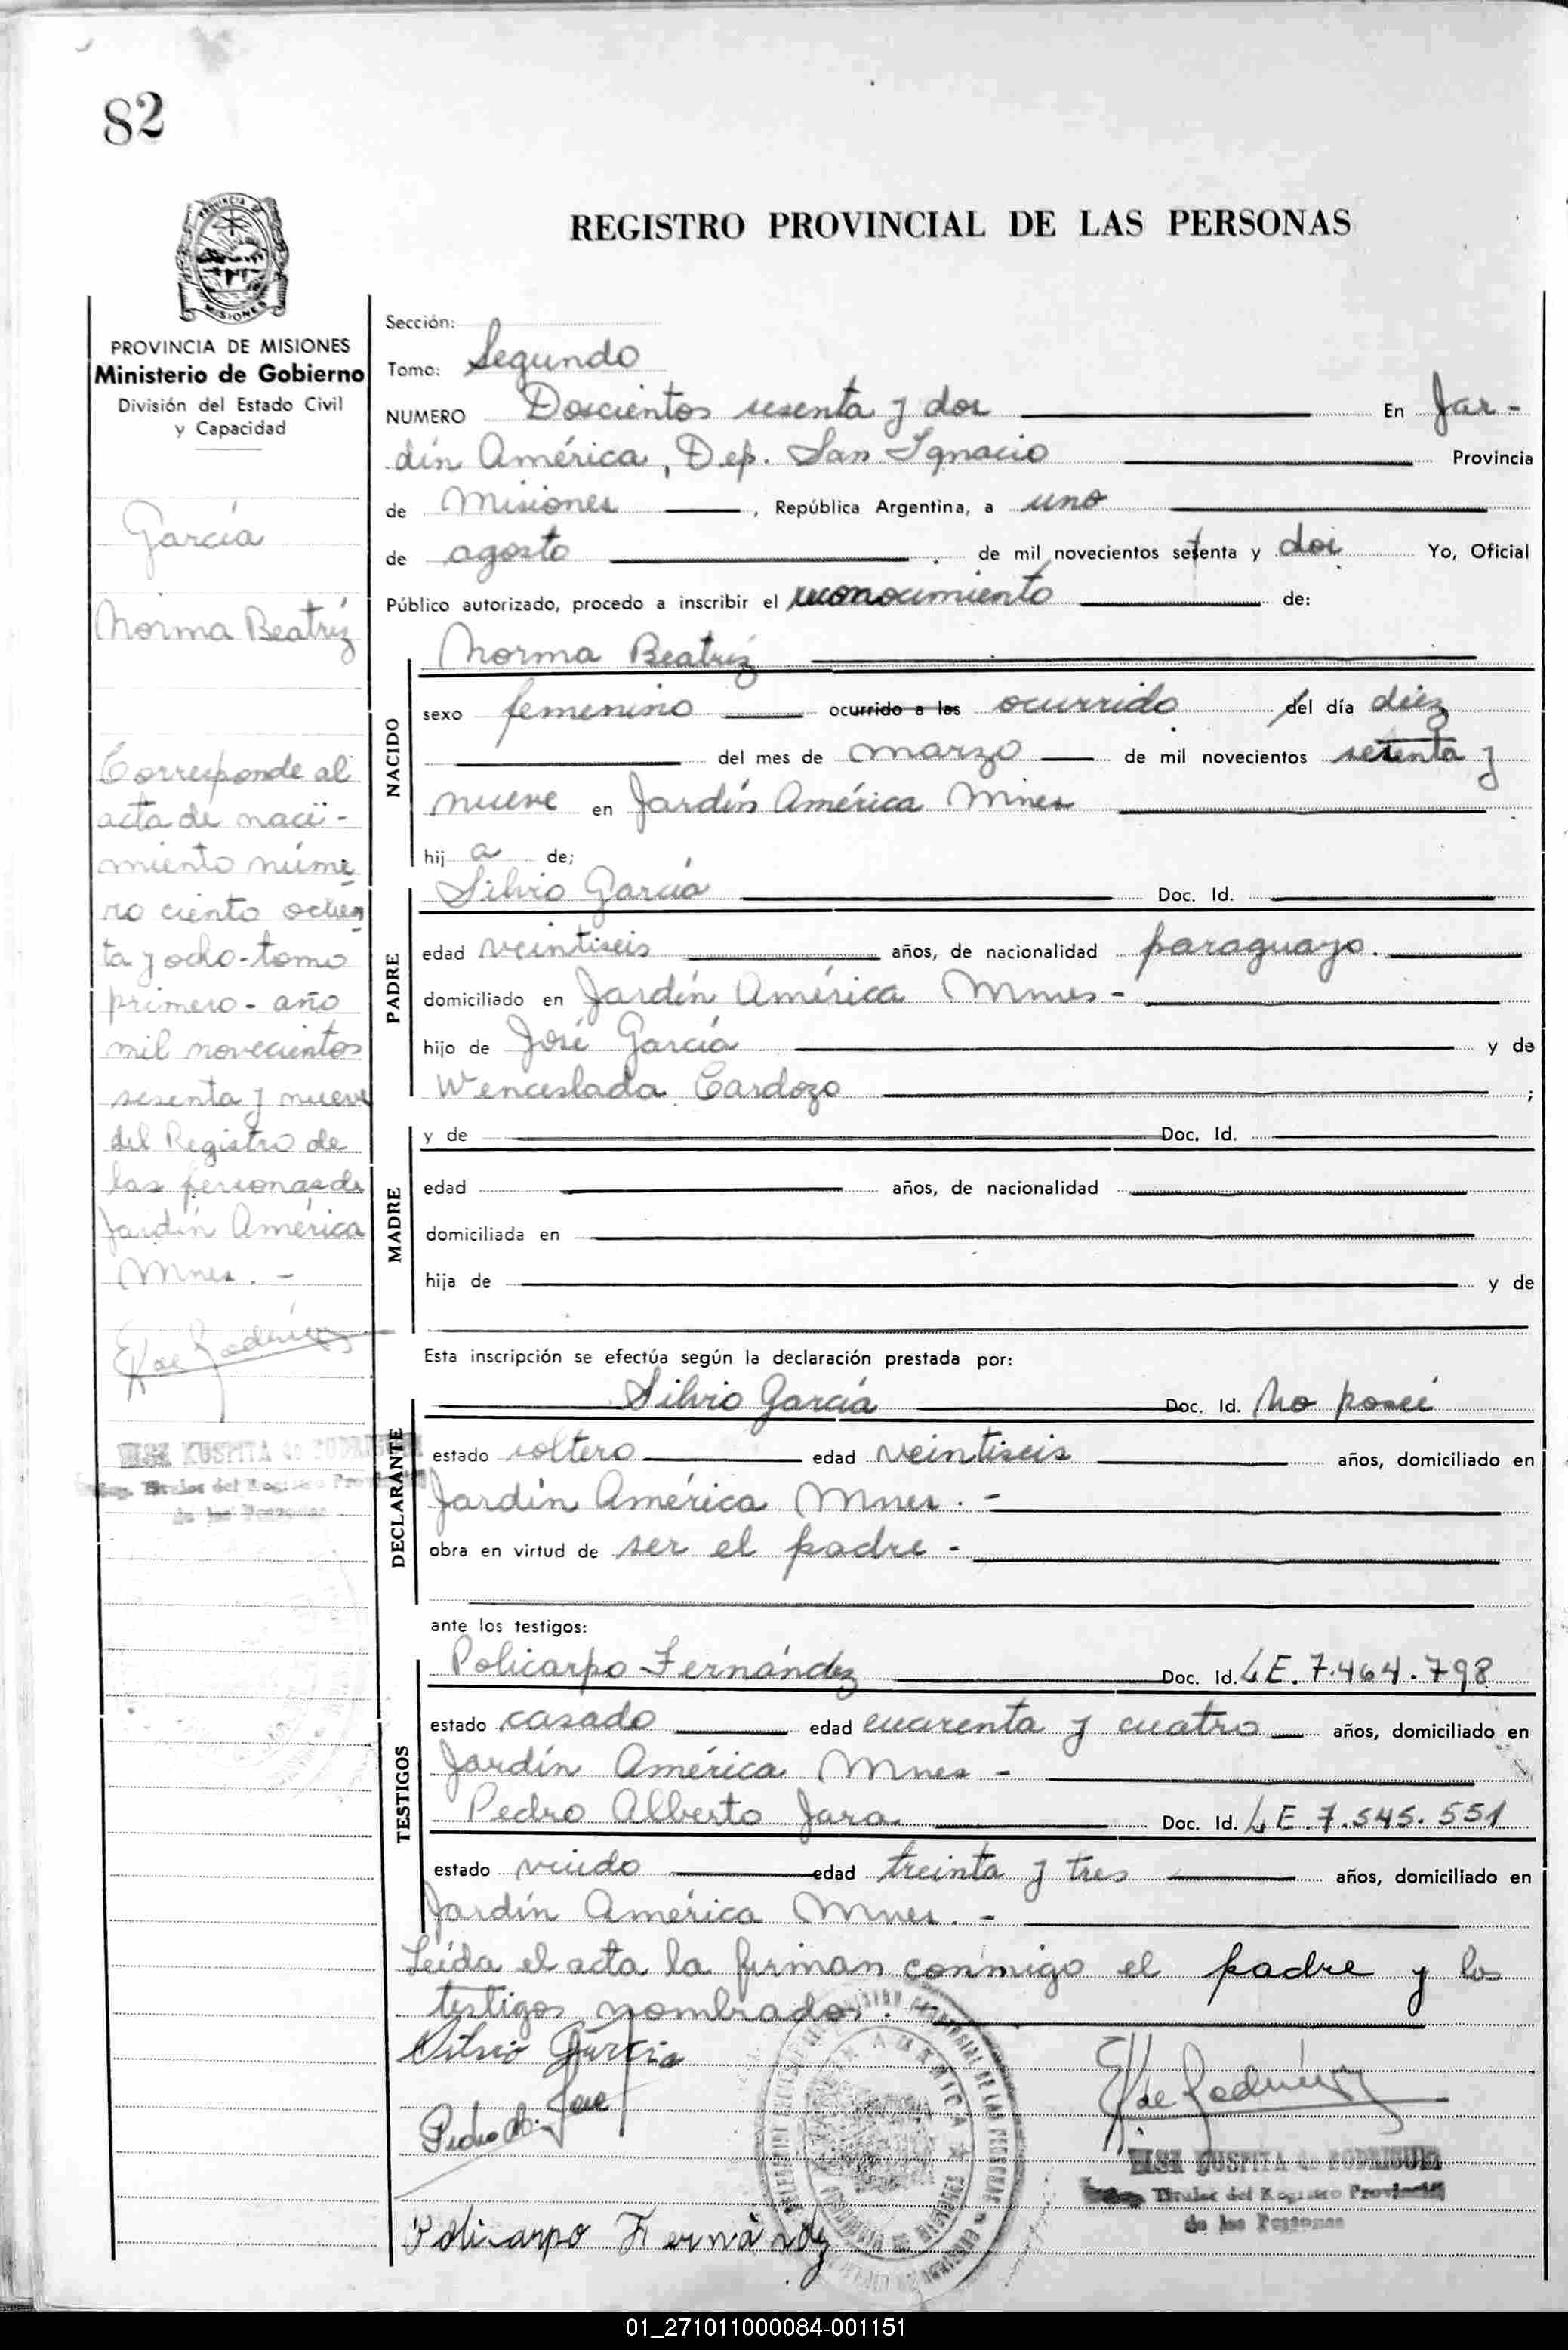 82
REGISTRO PROVINCIAL DE LAS PERSONAS
PROVINCIA DE MISIONES
Ministerio de Gobierno
División del Estado Civil
y Capacidad
García
Norma Beatríz
Corresponde al
acta de naci-
miento núme
ro ciento ochen
ta y ocho-tomo
primero - año
mil novecientos
sesenta y nueve
del Registro de
las personas de
Jardín América
Mnes. -
Sección:
Tomo: Segundo
NUMERO Doscientos sesenta y dos En Jar-
dín América, Dep. San Ignacio Provincia
de Misiones , República Argentina, a uno
de agosto de mil novecientos setenta y dos Yo, Oficial
Público autorizado, procedo a inscribir el reconocimiento de:
NACIDO
Norma Beatríz
sexo femenino ocurrido a las ocurrido del día diez
del mes de marzo de mil novecientos sesenta y
nueve en Jardín América Mnes
hij a de;
PADRE
Silvio García Doc. Id.
edad veintiseis años, de nacionalidad paraguayo.
domiciliado en Jardín América Mnes -
hijo de José García y de
Wenceslada Cardozo ;
MADRE
y de Doc. Id.
edad años, de nacionalidad
domiciliada en
hija de y de
Esta inscripción se efectúa según la declaración prestada por:
DECLARANTE
Silvio García Doc. Id. No poseé
estado soltero edad veintiseis años, domiciliado en
Jardín América Mnes. -
obra en virtud de ser el padre -
ante los testigos:
TESTIGOS
Policarpo Fernández Doc. Id. LE. 7.464.798
estado casado edad cuarenta y cuatro años, domiciliado en
Jardín América Mnes -
Pedro Alberto Jara Doc. Id. LE.7.545.551
estado viudo edad treinta y tres años, domiciliado en
Jardín América Mnes. -
Leída el acta la firman conmigo el padre y los
testigos nombrados. -
Silvio Garcia
Pedro A. Jara
Policarpo Fernández
KUSPITA de RODRIGUEZ
Titular del Registro Provincial
de las Personas
01_271011000084-001151